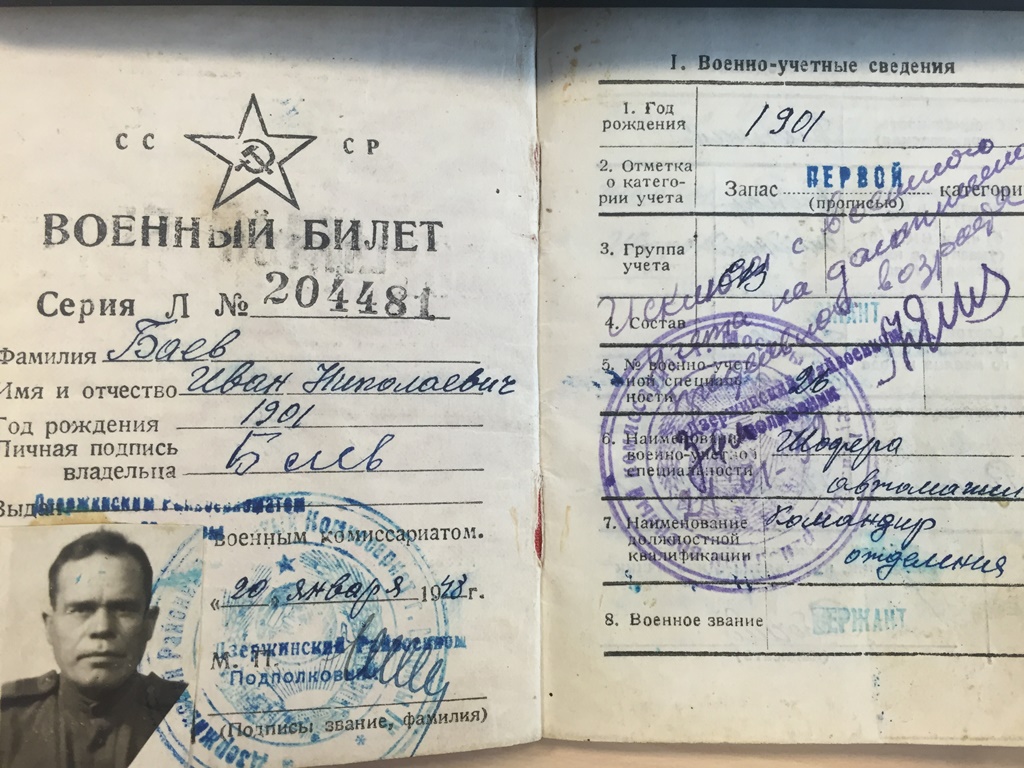 СС СР
ВОЕННЫЙ БИЛЕТ
Серия Л № 204481
Фамилия Баев
Имя и отчество Иван Николаевич
Год рождения 1901
Личная подпись
владельца Баев
Выдан Дзержинским Райвоенкоматом
военным комиссариатом.
„20" января 1948 г.
Дзержинский Райвоенком
М. П.
Подполковник
(Подписы звание, фамилия)
I. Военно-учетные сведения
1. Год
рождения 1901
2. Отметка
о катего-
рии учета
Запас ПЕРВОЙ категори
(прописью)
3. Группа
учета
Исключен с воинского
учета на дальнейшем
возраста
4. Состав
5. № военно-учет-
ной специаль-
ности 26
Дзержинский Райвоенком
Подполковник
6. Наименование
военно-учетной
специальности
Шофера
автомашин
7. Наименование
должностной
квалификации
Командир
отделения
8. Военное звание СЕРЖАНТ